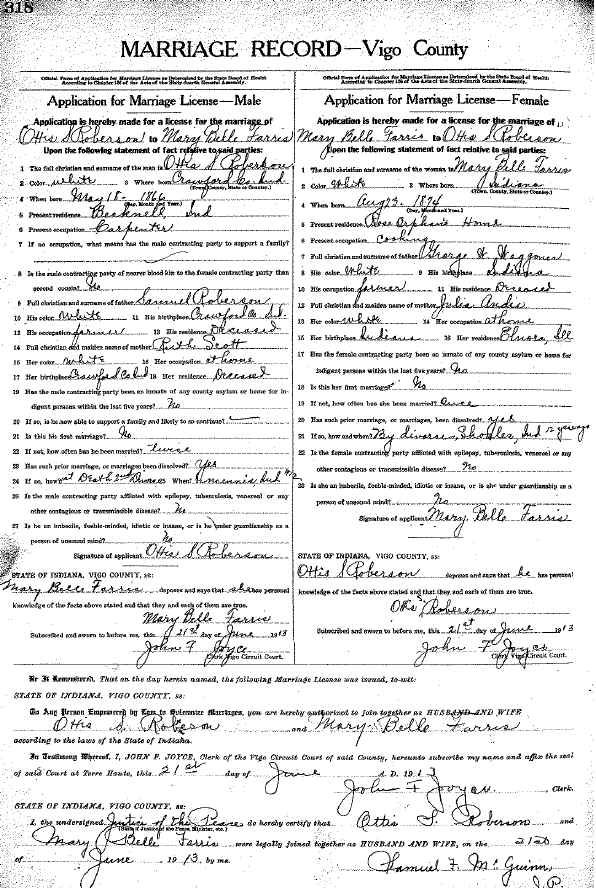 318
MARRIAGE RECORD—Vigo County
Official Form of Application for Marriage License as Determined by the State Board of Health
According to Chapter 126 of the Acts of the Sixty-fourth General Assembly.
Application for Marriage License—Male
Application is hereby made for a license for the marriage of
Ottis S Roberson to Mary Belle Farris
Upon the following statement of fact relative to said parties:
1 The full christian and surname of the man is Ottis S Roberson
2 Color white 3 Where born Crawford Co. Ind
(Town, County, State or Country.)
4 When born May 18 - 1866
(Day, Month and Year.)
5 Present residence Bicknell, Ind
6 Present occupation Carpenter
7 If no occupation, what means has the male contracting party to support a family?
8 Is the male contracting party of nearer blood kin to the female contracting party than
second cousin? No
9 Full christian and surname of father Samuel Roberson
10 His color White 11 His birthplace Crawford Co Ind.
12 His occupation farmer 13 His residence Deceased
14 Full christian and maiden name of mother Ruth Scott
15 Her color White 16 Her occupation at home
17 Her birthplace Crawford Co Ind 18 Her residence Deceased
19 Has the male contracting party been an inmate of any county asylum or home for in-
digent persons within the last five years? No
20 If so, is he now able to support a family and likely to so continue?
21 Is this his first marriage? No
22 If not, how often has he been married? twice
23 Has such prior marriage, or marriages been dissolved? Yes
24 If so, how 1st Death 2nd Divorces When? Vincennis Ind
25 Is the male contracting party afflicted with epilepsy, tuberculosis, venereal or any
other contagious or transmissible disease? No
27 Is he an imbecile, feeble-minded, idiotic or insane, or is he under guardianship as a
person of unsound mind? No
Signature of applicant Ottis S Roberson
STATE OF INDIANA, VIGO COUNTY, ss:
Mary Belle Farris deposes and says that she has personal
knowledge of the facts above stated and that they and each of them are true.
Mary Belle Farris
Subscribed and sworn to before me, this 21st day of June 1913
John F Joyce
Clerk Vigo Circuit Court.
Official Form of Application for Marriage License as Determined by the State Board of Health
According to Chapter 126 of the Acts of the Sixty-fourth General Assembly.
Application for Marriage License—Female
Application is hereby made for a license for the marriage of
Mary Belle Farris to Ottis S Roberson
Upon the following statement of fact relative to said parties:
1 The full christian and surname of the woman Mary Belle Farris
2 Color White 3 Where born Indiana
(Town, County, State or Country.)
4 When born Aug 23 - 1874
(Day, Month and Year.)
5 Present residence Rose Orphans Home
6 Present occupation Cooking
7 Full christian and surname of father George W. Waggoner
8 His color White 9 His birthplace Indiana
10 His occupation farmer 11 His residence Deceased
12 Full christian and maiden name of mother Julia Andis
13 Her color white 14 Her occupation at home
15 Her birthplace Indiana 16 Her residence Elnora, Ill
17 Has the female contracting party been an inmate of any county asylum or home for
indigent persons within the last five years? No
18 Is this her first marriage? No
19 If not, how often has she been married? once
20 Has such prior marriage, or marriages, been dissolved? yes
21 If so, how and when? By divorce, Shoals, Ind 12 years
22 Is the female contracting party afflicted with epilepsy, tuberculosis, venereal or any
other contagious or transmissible disease? No
23 Is she an imbecile, feeble-minded, idiotic or insane, or is she under guardianship as a
person of unsound mind? No
Signature of applicant Mary Belle Farris
STATE OF INDIANA, VIGO COUNTY, ss:
Ottis S Roberson deposes and says that he has personal
knowledge of the facts above stated and that they and each of them are true.
Otis S Roberson
Subscribed and sworn to before me, this 21st day of June 1913
John F Joyce
Clerk, Vigo Circuit Court.
Be It Remembered, That on the day herein named, the following Marriage License was issued, to-wit:
STATE OF INDIANA, VIGO COUNTY, ss:
To Any Person Empowered by Law to Solemnize Marriages, you are hereby authorized to join together as HUSBAND AND WIFE
Otis S. Roberson and Mary Belle Farris
according to the laws of the State of Indiana.
In Testimony Whereof, I, JOHN F. JOYCE, Clerk of the Vigo Circuit Court of said County, hereunto subscribe my name and affix the seal
of said Court at Terre Haute, this 21st day of June A. D. 1913
John F Joyce, Clerk.
STATE OF INDIANA, VIGO COUNTY, ss:
I, the undersigned Justice of the Peace do hereby certify that Ottis S. Roberson and
(State if Justice of the Peace, Minister, etc.)
Mary Belle Farris were legally joined together as HUSBAND AND WIFE, on the 21st day
of June 1913 by me.
Samuel F. McGuinn
J. P.